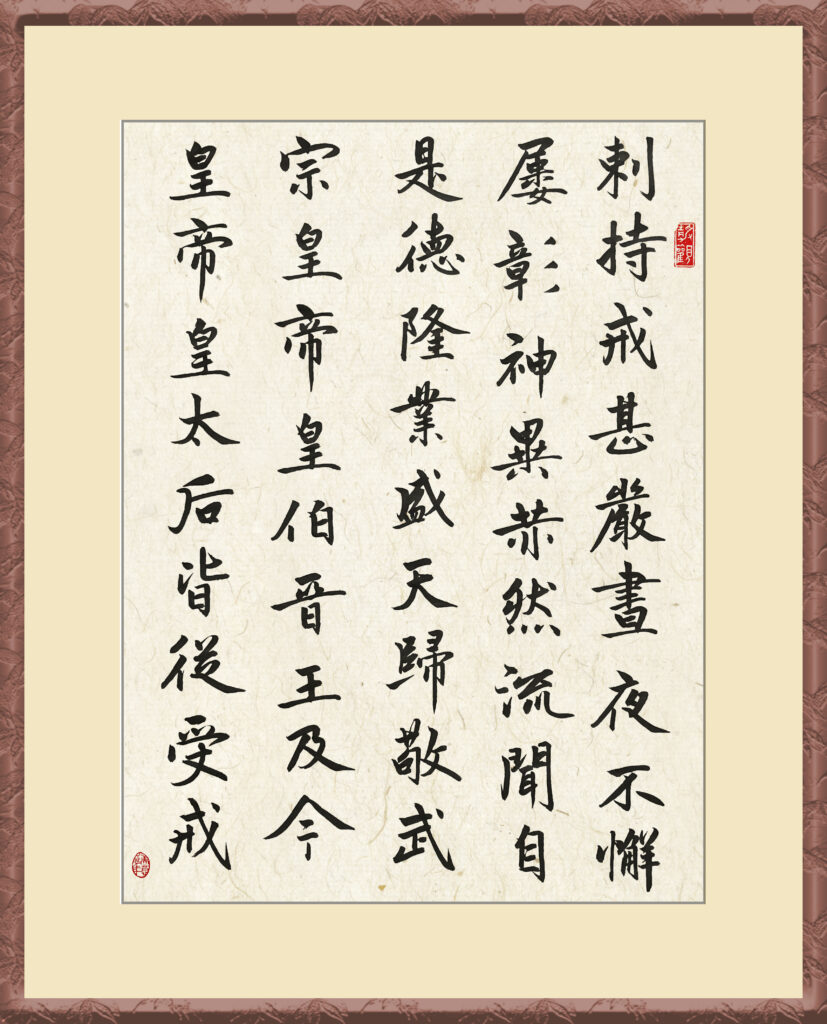 剌持戒甚嚴晝夜不懈
屢彰神異赫然流聞自
是德隆業盛天歸敬武
宗皇帝皇伯晉王及今
皇帝皇太后皆從受戒